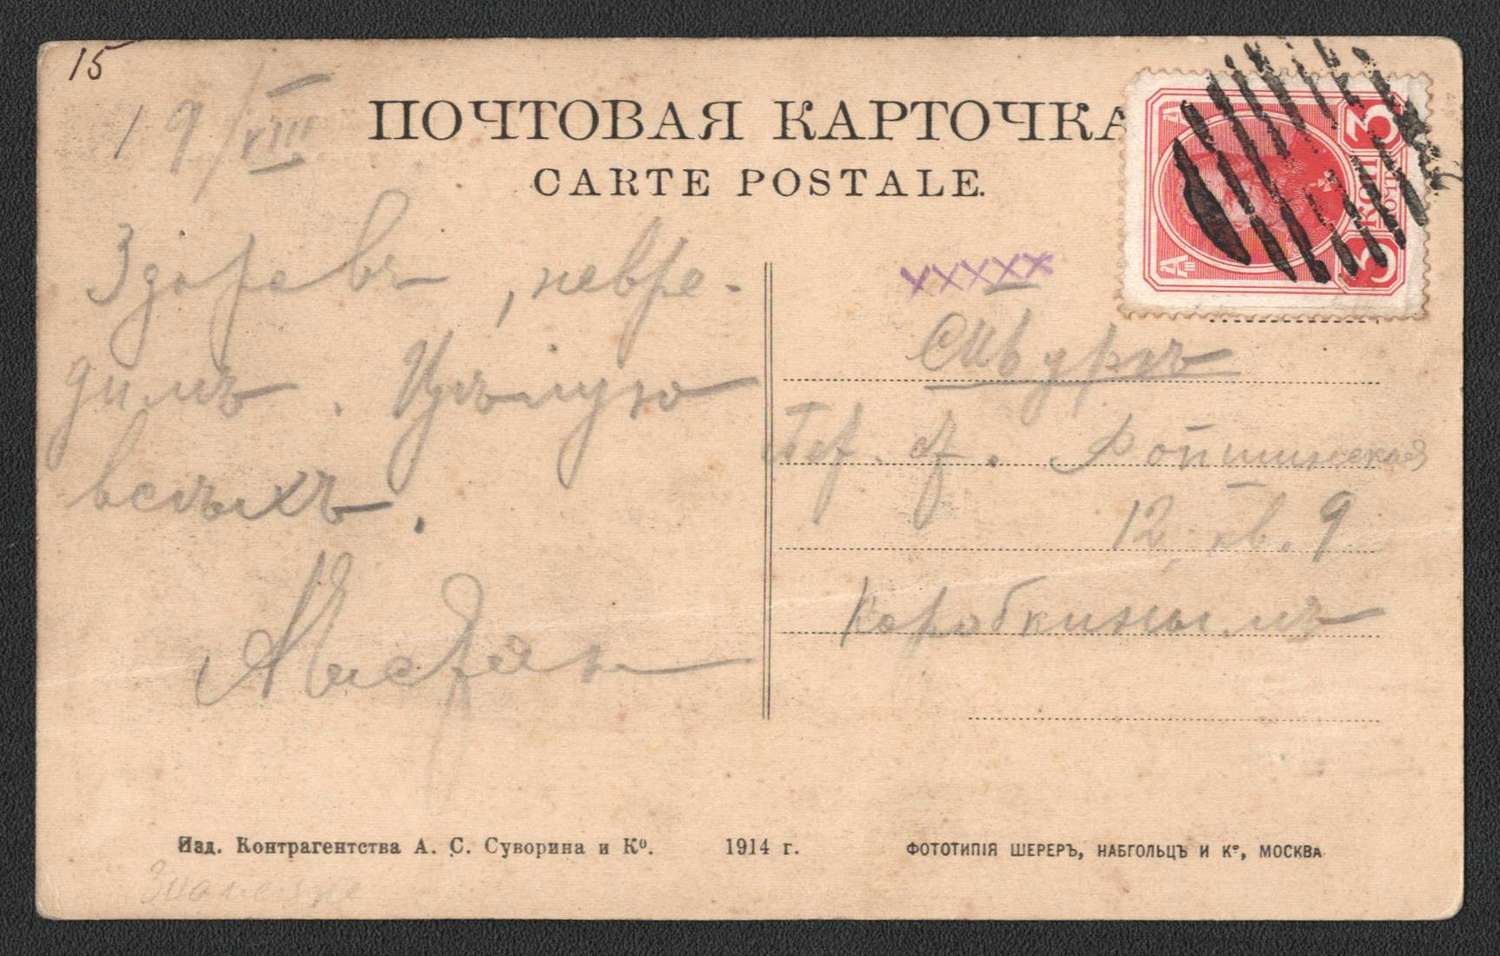 15
19/VIII
ПОЧТОВАЯ КАРТОЧКА
CARTE POSTALE.
3 КОП
3
Здоровъ, невре-
димъ. Цѣлую
всѣхъ.
СПБургъ
Ропшинская
12 кв. 9
Коробкинымъ
Изд. Контрагентства А. С. Суворина и Кº. 1914 г.
ФОТОТИПІЯ ШЕРЕРЪ, НАБГОЛЬЦЪ И Кº, МОСКВА